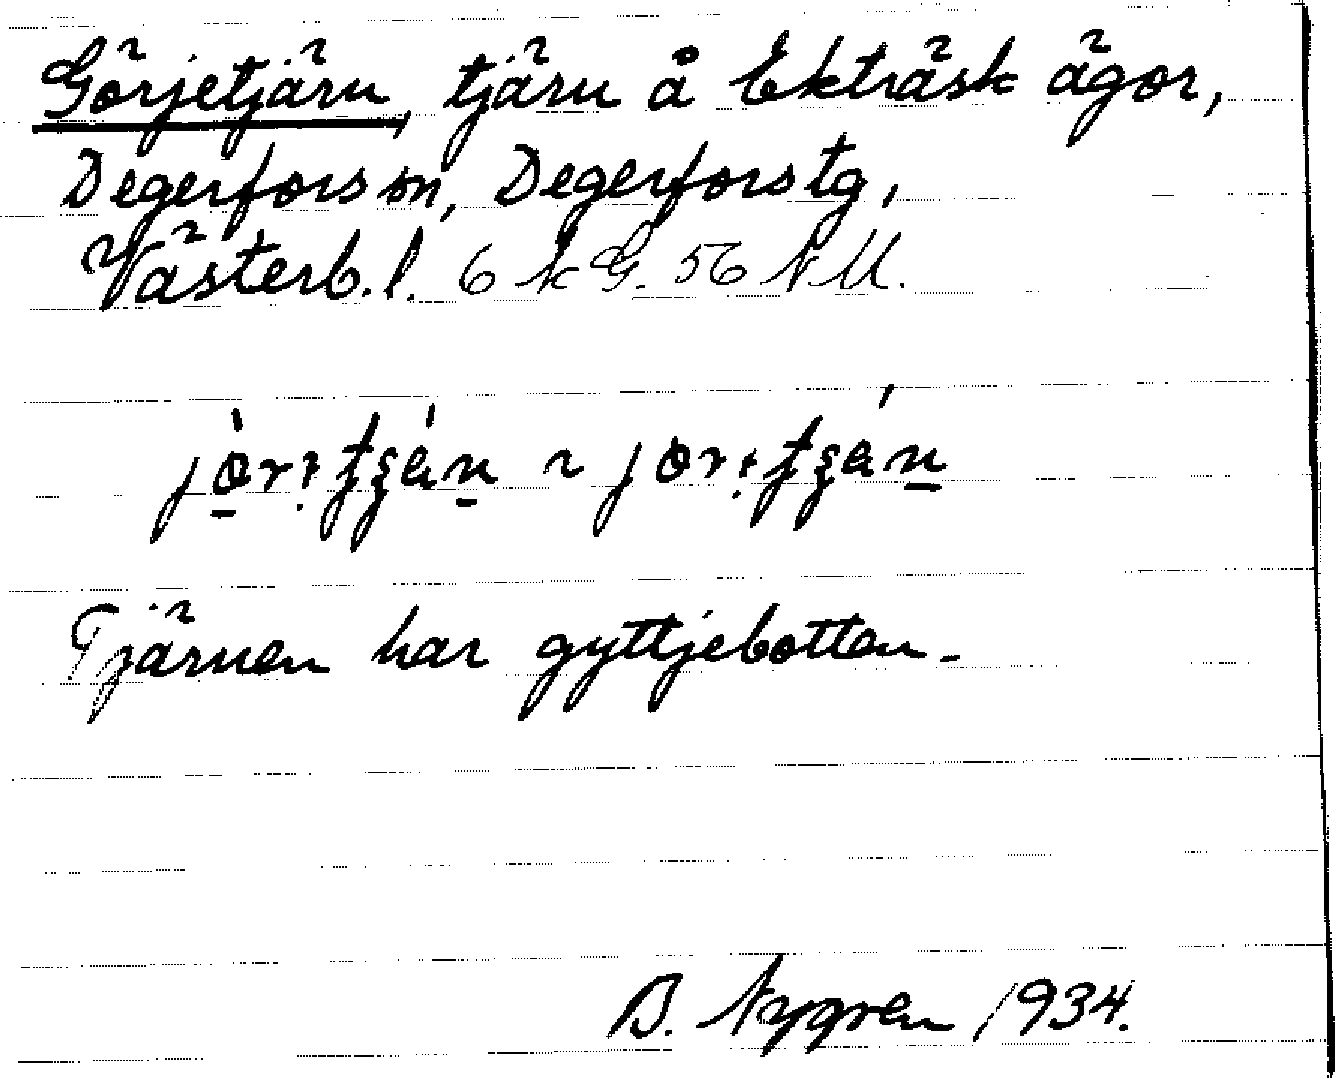 Görjetjärn, tjärn å Ekträsk ägor,
Degerfors sn, Degerfors tg,
Västerb. l. 6 k G. 56 NM.
Tjärnen har gyttjebotten.
B. Nygren 1934.